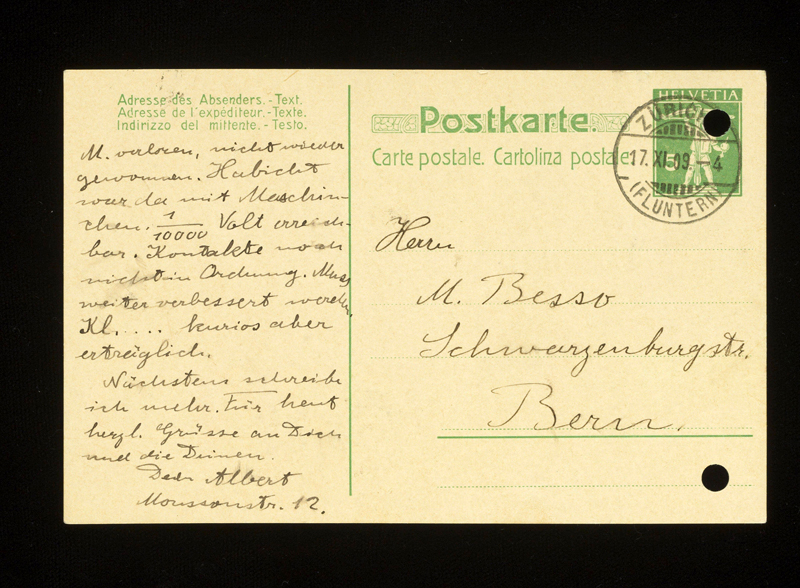 Adresse des Absenders. - Text.
Adresse de l'expéditeur. - Texte.
Indirizzo del mittente. - Testo.
M. verloren, nicht wieder
gewonnen. Habicht
war da mit Maschin-
chen. 1/10000 Volt erreich-
bar. Kontakte noch
nicht in Ordnung. Muss
weiter verbessert werden.
Kl. . . . kurios aber
erträglich.
Nächstens schreibe
ich mehr. Für heut
herzl. Grüsse an Dich
und die Deinen.
Dein Albert
Moussonstr. 12.
Postkarte.
Carte postale. Cartolina postale.
HELVETIA
ZÜRICH
17.XI.09.-4
(FLUNTERN)
Herrn
M. Besso
Schwarzenburgstr.
Bern.